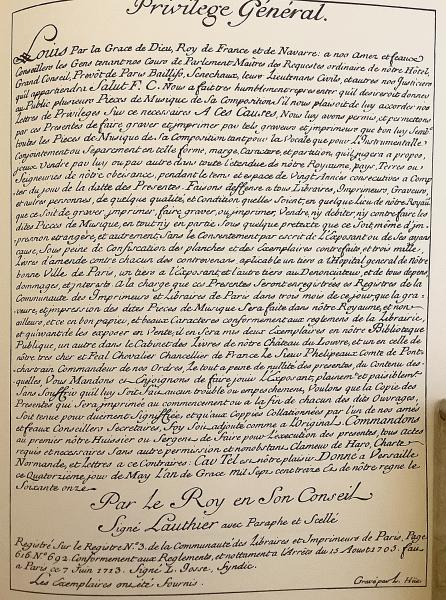 Privilege Général.
Louis Par la Grace de Dieu, Roy de France et de Navarre: a nos Amez et feaux
Conseillers les Gens tenant nos Cours de Parlement Maitres des Requestes ordinaire de nôtre Hôtel,
Grand Conseil, Prevôt de Paris Baillifs, Senechaux, leurs Lieutenans Civils, et autres nos Justiciers
qu'il appartiendra Salut F. C. Nous a fait tres humblement representer qu'il desireroit donner
au Public plusieurs Pieces de Musique de Sa Composition S'il nous plaisoit de luy accorder nos
Lettres de Privileges Sur ce necessaires A Ces Causes, Nous luy avons permis, et permettons
par ces Presentes de faire graver et imprimer par tels graveurs et imprimeurs que bon luy Semb.
toutes les Pieces de Musique de Sa Composition tant pour la Vocale que pour L'Instrumentalle
Conjointement ou Separement en telle forme, marge, Caractere et partition qu'il jugera a propos,
Vendre par luy ou pas autre dans toute l'etendue de nôtre Royaume, pays, Terres ou
Seigneuries de nôtre obeisance, pendant le tems et espace de Vingt Années consecutives a Comp-
ter du jour de la datte des Presentes. Faisons deffense a tous Libraires, Imprimeurs, Graveurs,
et autres personnes, de quelque qualité, et Condition quelles Soient, en quelque Lieu de nôtre Royau.
que ce Soit de graver, imprimer, faire graver, ou imprimer, Vendre, n'y debiter, n'y contrefaire les
dites Pieces de Musique, en tout n'y en partie Sous quelque pretexte que ce Soit même d'im-
pression etrangere, et autrement, Sans le Consentement par escrit de L'Exposant ou de Ses ayans
cause, Sous peine de Confiscation des planches et des Exemplaires contrefaits, et trois mille
Livres d'amende contre chacun des contrevenans, aplicable un tiers a L'hôpital general de nôtre
bonne Ville de Paris, un tiers a l'Exposant, et l'autre tiers au Denonciateur, et de tous depens,
dommages, et interests. A la charge que ces Presentes Seront enregistrées es Registres de la
Communauté des Imprimeurs et Libraires de Paris dans trois mois de ce jour, que la gra-
vure, et impression des dites Pieces de Musique Sera faite dans nôtre Royaume, et non
ailleurs, et ce en bon papier, et beaux Caracteres conformement aux reglemens de la Librairie,
et qu'avant de les exposer en Vente, il en Sera mis deux Exemplaires en nôtre Bibliotéque
Publique, un autre dans le Cabinet des Livres de nôtre Château du Louvre, et un en celle de
nôtre tres cher et Feal Chevalier Chancellier de France Le Sieur Phelipeaux Comte de Pont-
chartrain Commandeur de nos Ordres, Le tout a peine de nullité des presentes, du Contenu des-
quelles Vous Mandons et Enjoignons de faire jouir L'Exposant plainemt. et paisiblemt.
Sans Souffrir qu'il luy Soit fait aucun trouble ou empeschement. Voulons que la Copie des
Presentes qui Sera imprimée au commencement ou a la fin de chacun des dits Ouvrages,
Soit tenue pour duement Signiffiée, et qu'aux Coppies Collationnées par l'un de nos amés
et feaux Conseillers Secretaires, foy Soit adjoutée comme a L'Original. Commandons
au premier nôtre Huissier ou Sergent de Faire pour l'execution des presentes, tous actes
requis et necessaires Sans autre permission et nonobstant Clameur de Haro, Charte
Normande, et Lettres a ce Contraires: Car Tel est nôtre plaisir Donné a Versaille
ce Quatorzième jour de May L'an de Grace mil Sept cent treize et de nôtre regne le
Soixante onze
Par Le Roy en Son Conseil
Signé Lauthier avec Paraphe et Scellé
Registré Sur le Registre N.º 3. de la Communauté des Libraires et Imprimeurs de Paris, Page
616 Nº 692 Conformement aux Reglements, et nottamment a l'Arrêt du 13 Aoust 1703. fait
a Paris ce 7 Juin 1713. Signé L. Josse, Syndic.
Les Exemplaires ont été fournis.
Gravé par L. Hüe